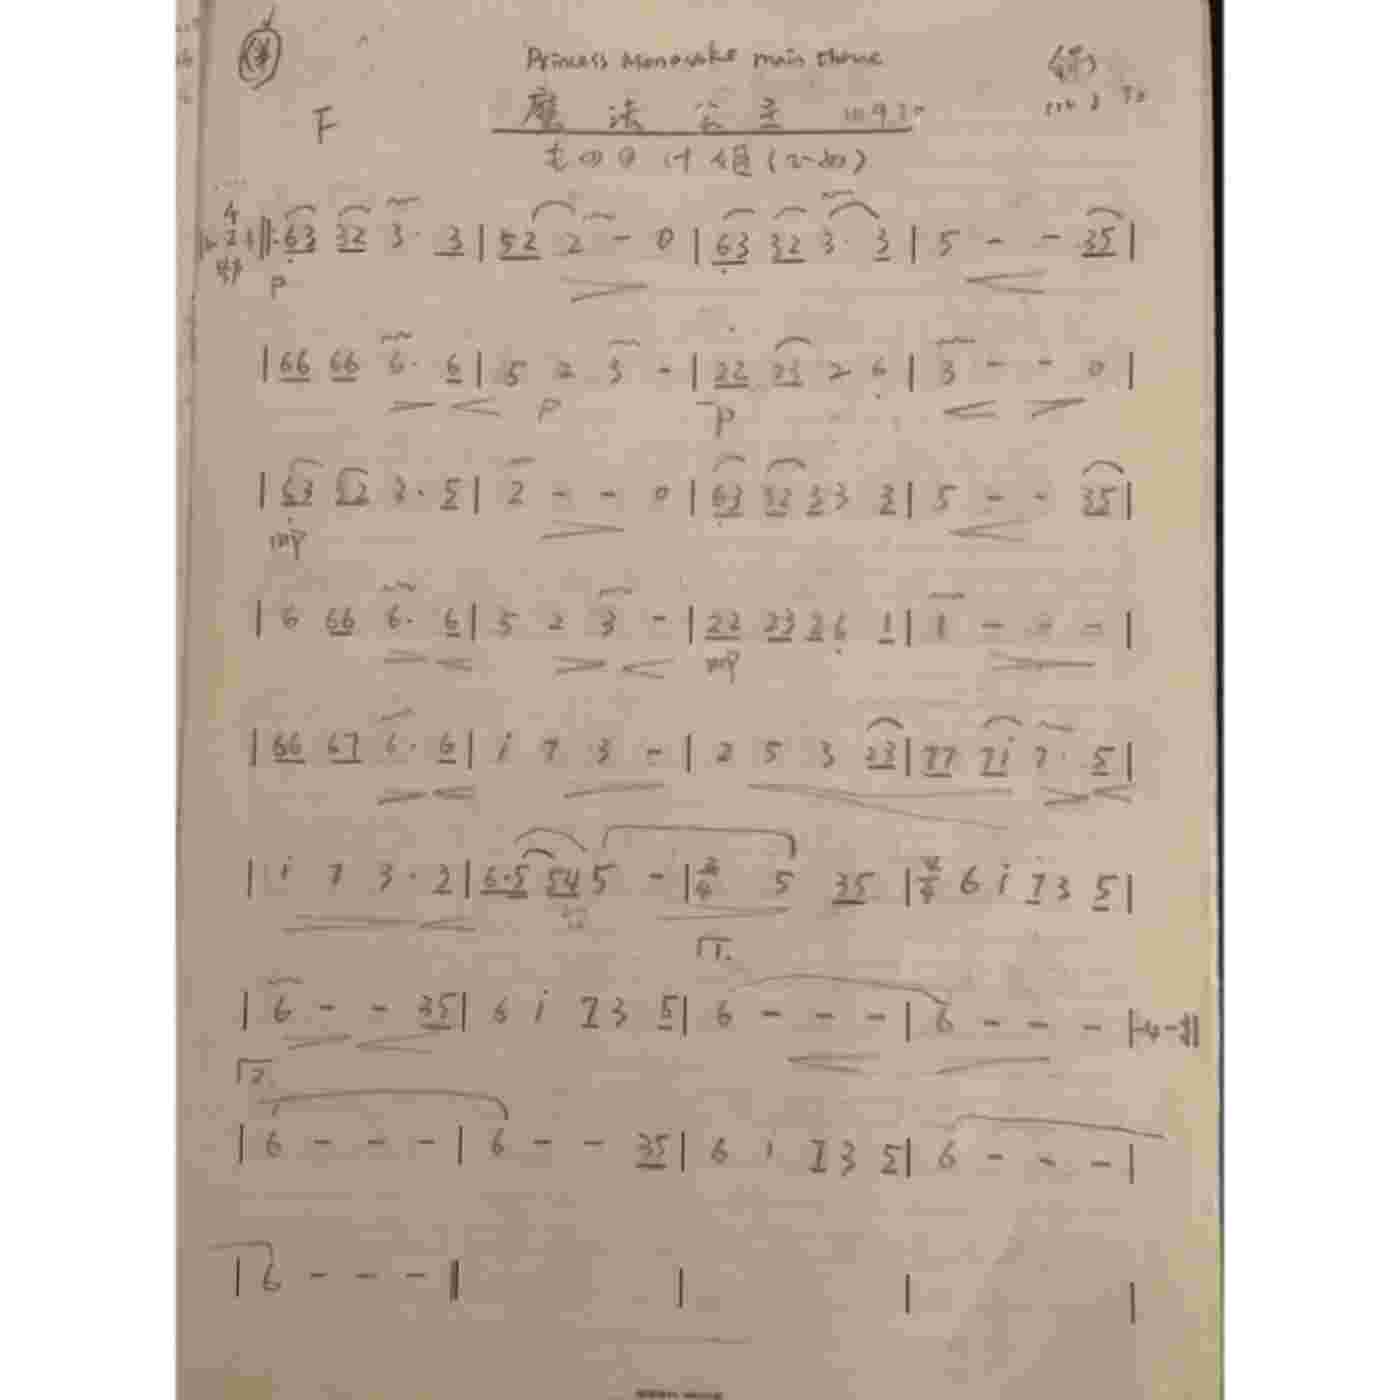 Princess Mononoke main theme
魔 法 公 主
F
|: 63 32 3 · 3 | 52 2 - 0 | 63 32 3 · 3 | 5 - - 35 |
p
| 66 66 6 · 6 | 5 2 3 - | 22 23 2 6 | 3 - - 0 |
p p
| 63 52 3 · 5 | 2 - - 0 | 63 32 3 3 3 | 5 - - 35 |
mp
| 6 66 6 · 6 | 5 2 3 - | 22 23 2 6 1 | 1 - - - |
mp
| 66 67 6 · 6 | i 7 3 - | 2 5 3 23 | 77 7i 7 · 5 |
| i 7 3 · 2 | 6·5 54 5 - | 2/4 5 35 | 4/4 6 i 7 3 5 |
1.
| 6 - - 35 | 6 i 7 3 5 | 6 - - - | 6 - - - | -4-
2.
| 6 - - - | 6 - - 35 | 6 i 7 3 5 | 6 - - - |
| 6 - - - ||